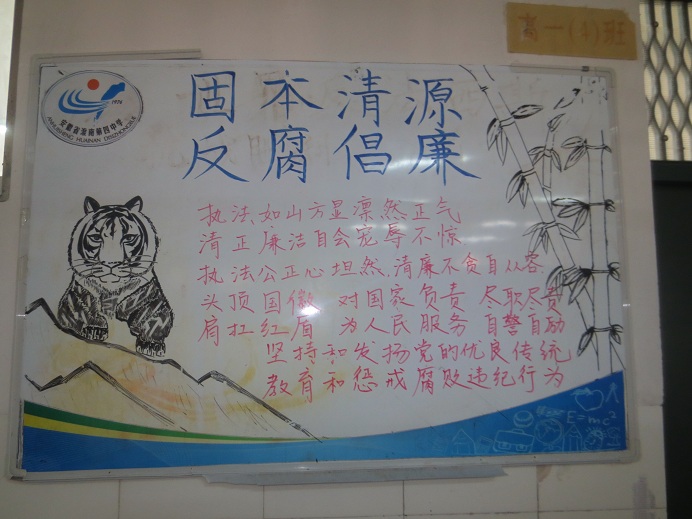 高一(4)班
1976
安徽省淮南第四中学
ANHUISHENG HUAINAN DISIZHONGXUE
固本清源
反腐倡廉
执法如山方显凛然正气
清正廉洁自会宠辱不惊
执法公正心坦然,清廉不贪自从容
头顶国徽 对国家负责 尽职尽责
肩扛红盾 为人民服务 自警自励
坚持和发扬党的优良传统
教育和惩戒腐败违纪行为
E=mc²